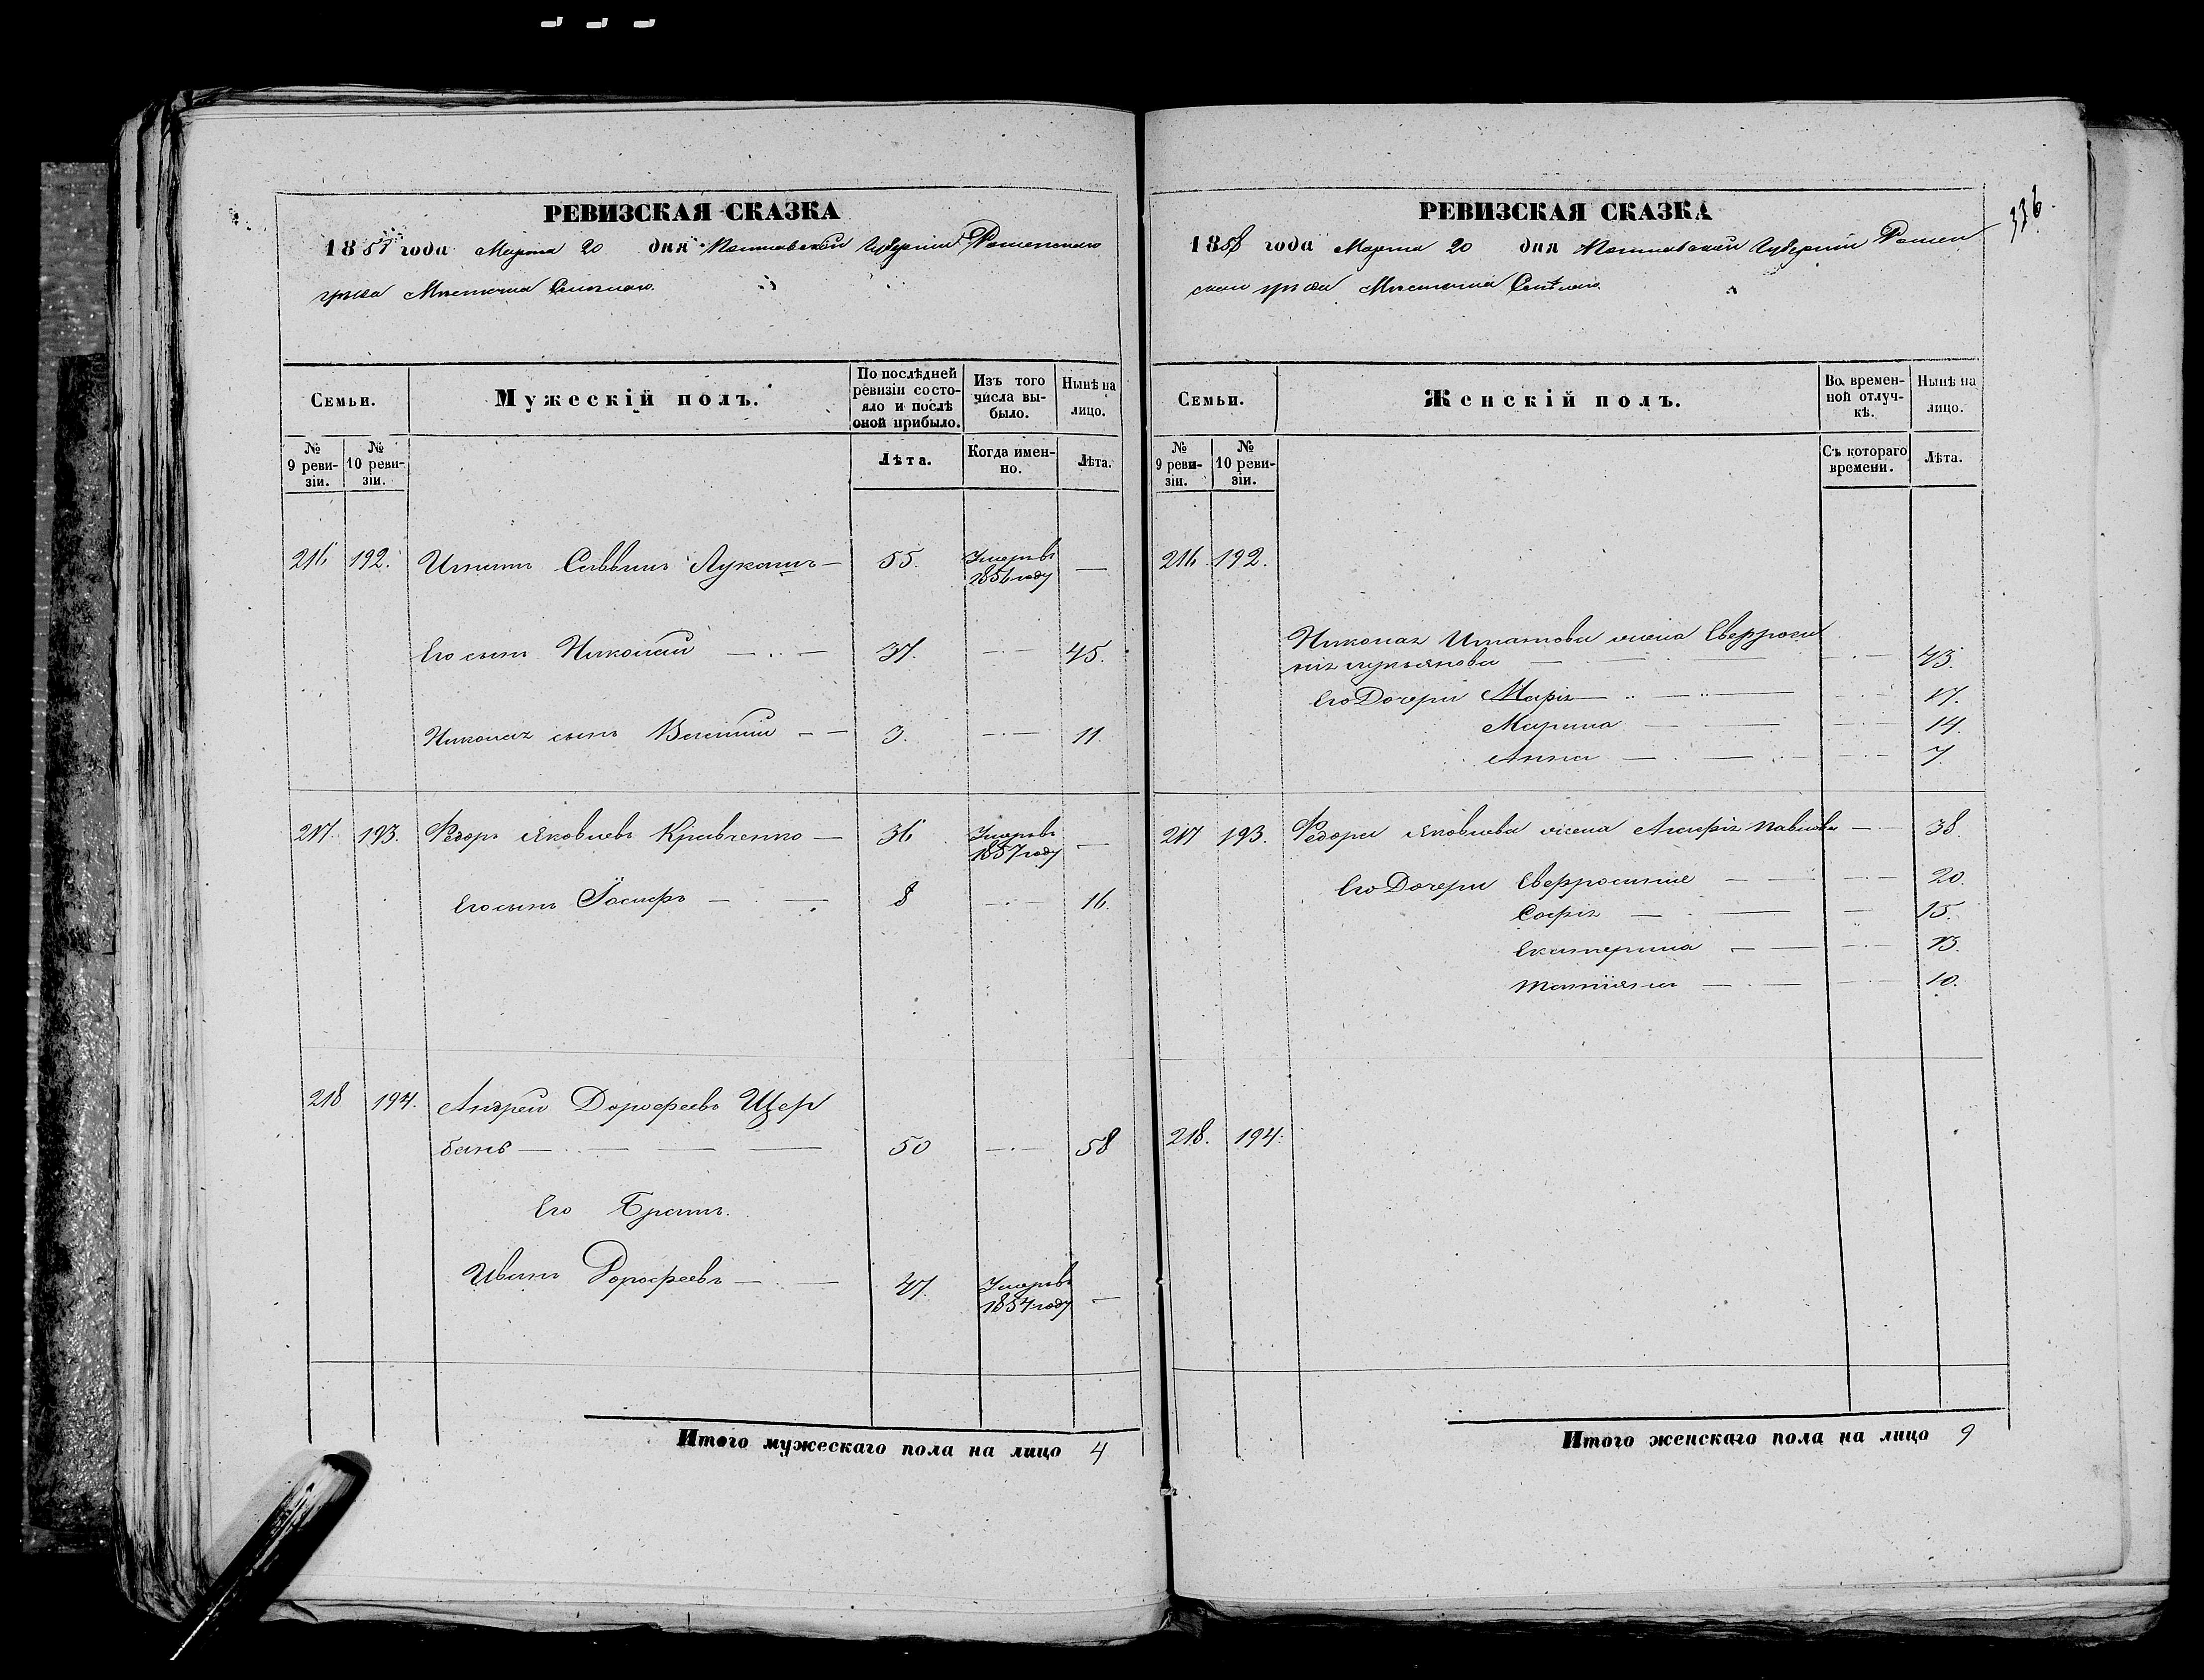 РЕВИЗСКАЯ СКАЗКА
1858 года Марта 20 дня Полтавской Губернии Роменскаго
уѣзда Мѣстечка Смѣлаго.
Семьи.
Мужескій полъ.
По послѣдней ревизіи состояло и послѣ оной прибыло.
Изъ того числа выбыло.
Нынѣ на лицо.
№ 9 ревизіи.
№ 10 ревизіи.
Лѣта.
Когда именно.
Лѣта.
216 192. Игнатъ Саввинъ Лукашъ — 55. Умеръ въ 1856 году —
Его сынъ Николай — 37. — 45.
Николая сынъ — 3. — 11.
217. 193. Федоръ Яковлевъ Кравченко — 36 Умеръ въ 1857 году —
Его сынъ Іосифъ — 8 — 16.
218 194. Андрей Дорофеевъ Щер
банъ — 50 — 58
Его Братъ.
Иванъ Дорофеевъ — 47. Умеръ въ 1854 году —
Итого мужескаго пола на лицо 4
336.
РЕВИЗСКАЯ СКАЗКА
1858 года Марта 20 дня Полтавской Губерніи Ромен
скаго уѣзда Мѣстечка Смѣлаго.
Семьи.
Женскій полъ.
Во временной отлучкѣ.
Нынѣ на лицо.
№ 9 ревизіи.
№ 10 ревизіи.
Съ котораго времени.
Лѣта.
216. 192.
Николая Игнатова жена Евфроси
нія Лукьянова — 43.
Его Дочери Марія — 17.
Марина — 14.
Анна — 7
217 193. Федора Яковлева жена Агафія Павлова — 38.
Его Дочери Евфросинія — 20.
Софія — 15.
Екатерина — 13.
Татіяна — 10.
218. 194.
Итого женскаго пола на лицо 9